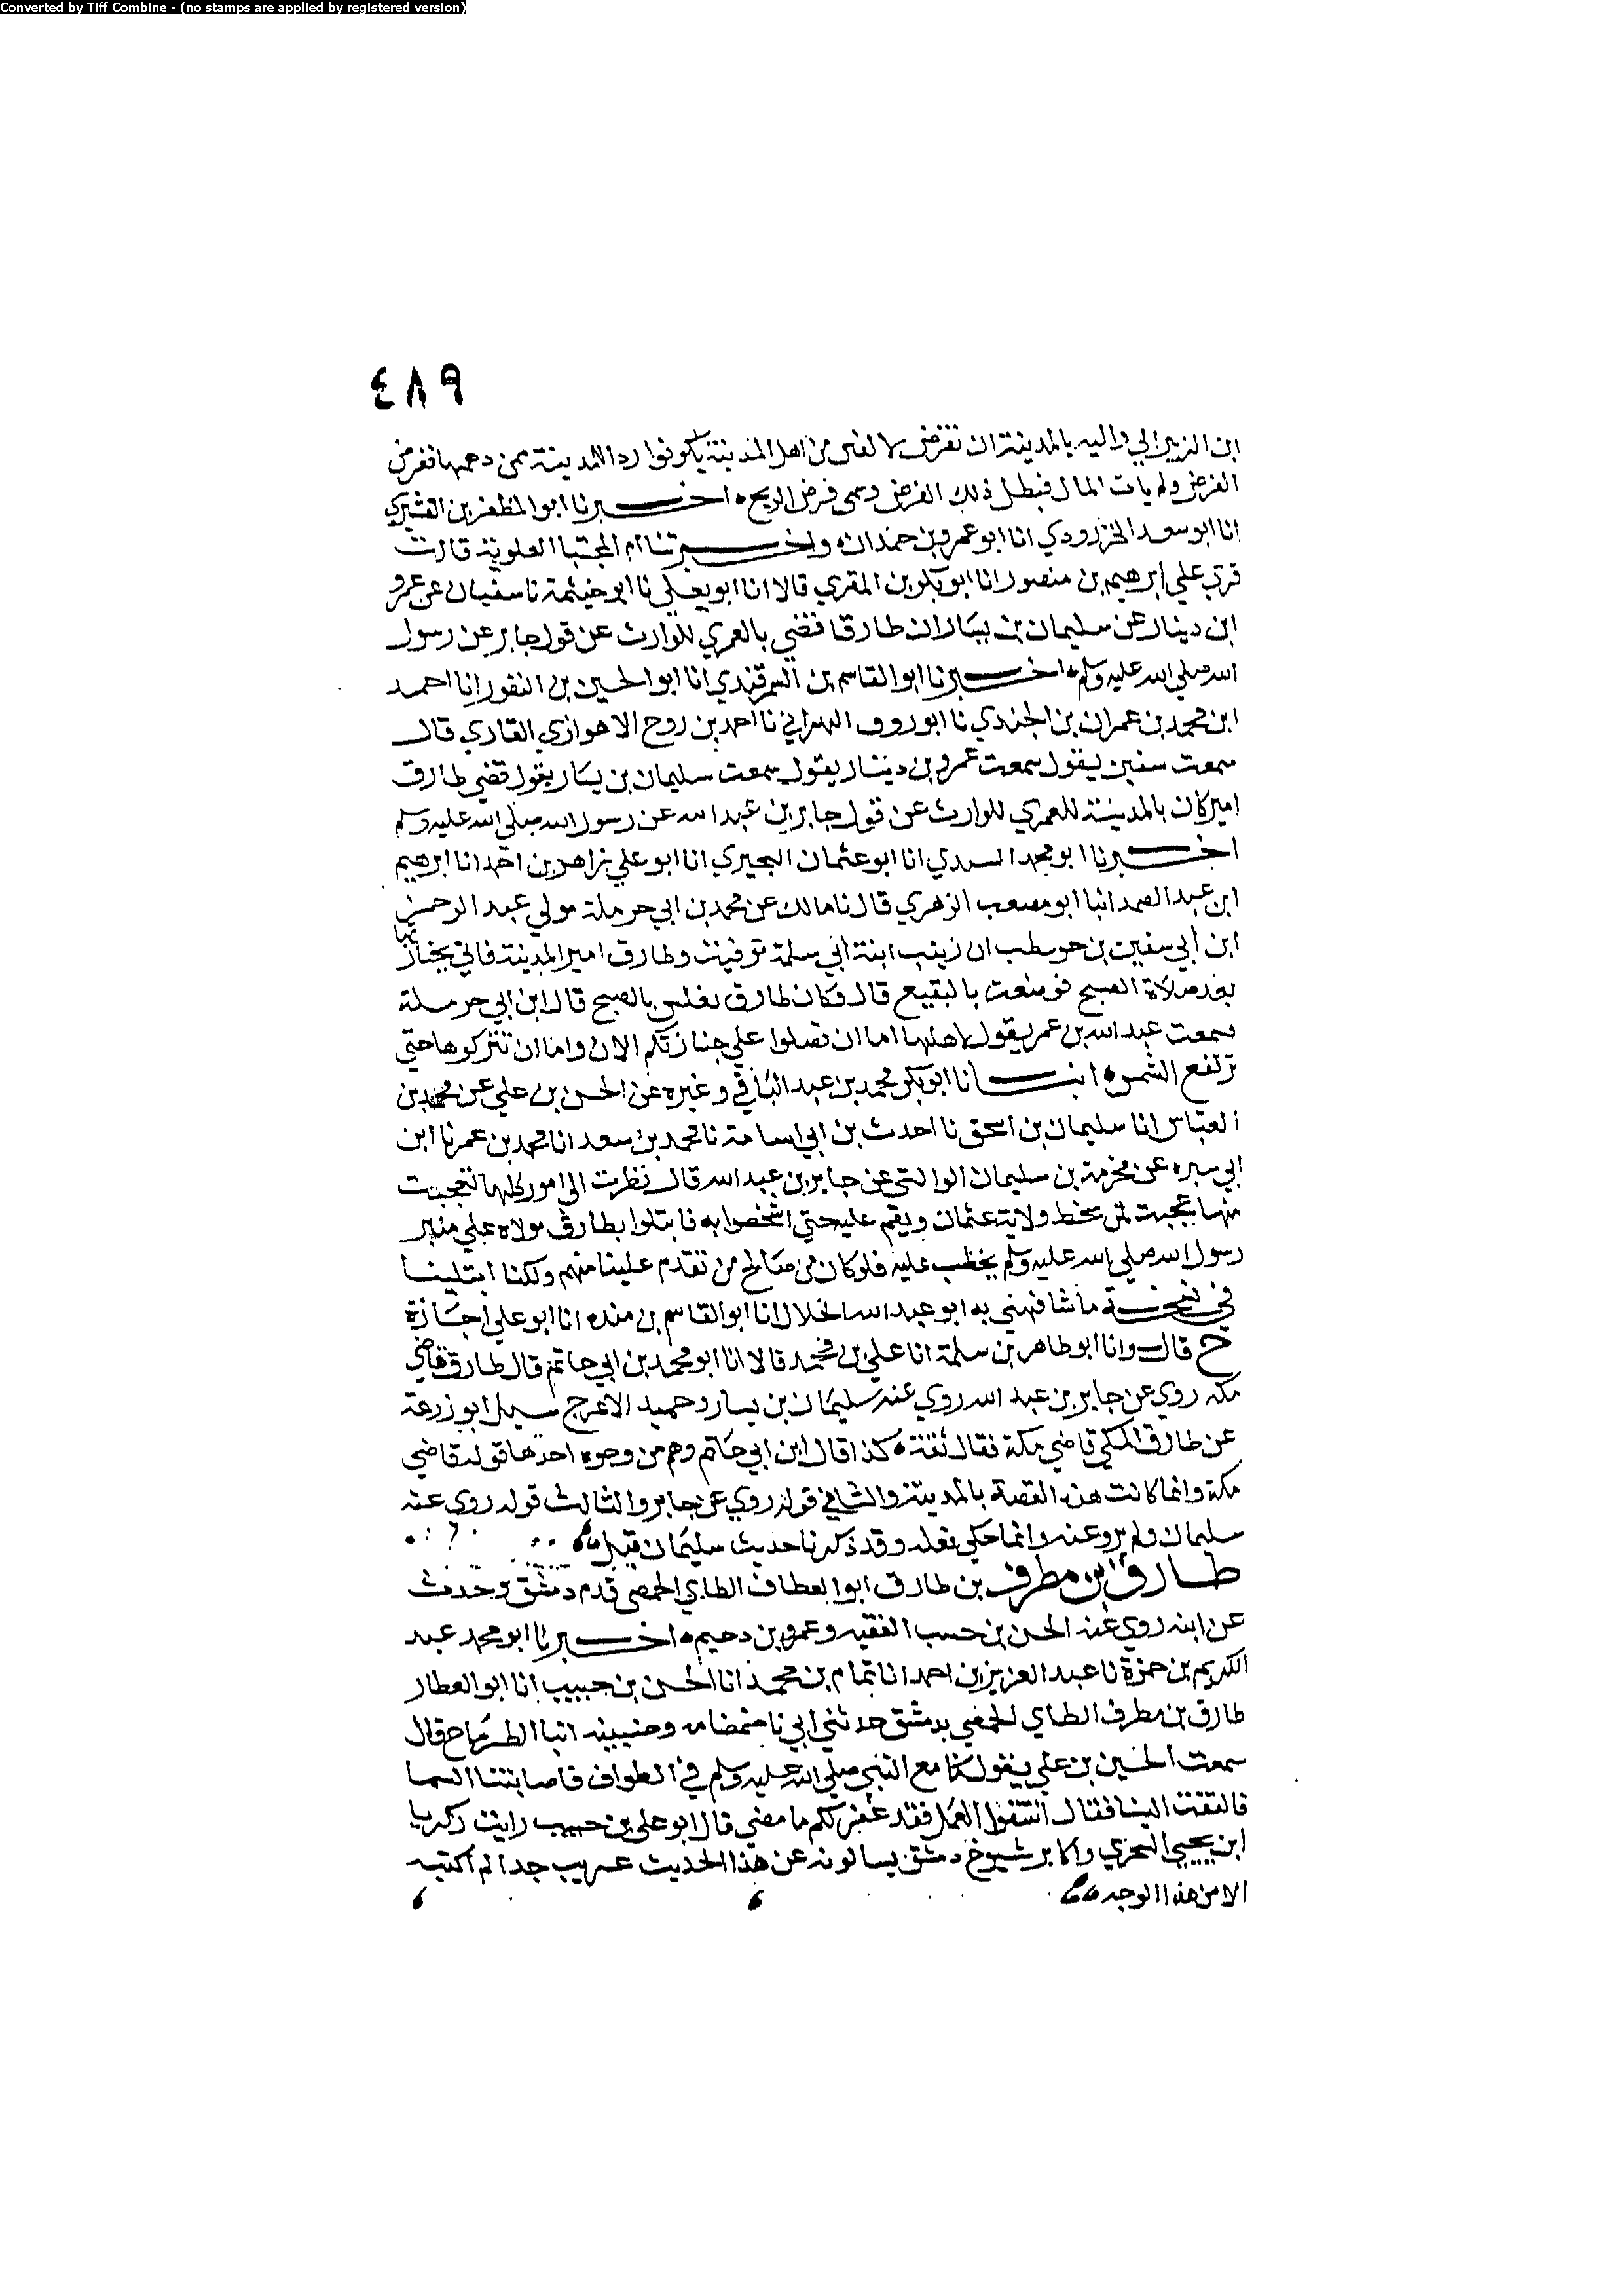 Converted by Tiff Combine - (no stamps are applied by registered version)
٤٨٩
ابن الزبير الي واليه بالمدينة ان تفرض لالفين من اهل المدينة ليكونوا ردا للمدينة ممن دهمها ففرض
الفرض ولم يات المال فبطل ذلك الفرض وسمى فرض الريح اخبرنا ابو المظفر بن القشيري
انا ابو سعد الخنزرودي انا ابو عمرو بن حمدان واخبرتنا ام المجتبا العلوية قالت
قري علي ابرهيم بن منصور انا ابو بكر بن المقري قالا انا ابو يعلي نا ابو خيثمة نا سفيان عن عمرو
ابن دينار عن سليمان بن يسار ان طارقا قضي بالعمري للوارث عن قول جابر عن رسول
الله صلي الله عليه وسلم اخبرنا ابو القاسم بن السمرقندي انا ابو الحسين بن النقور انا احمد
ابن محمد بن عمران بن الجندي نا ابو روق الهزاني نا احمد بن روح الاهوازي القاري قال
سمعت سفين يقول سمعت عمرو بن دينار يقول سمعت سليمان بن يسار يقول قضي طارق
امير كان بالمدينة للعمري للوارث عن قول جابر بن عبد الله عن رسول الله صلي الله عليه وسلم
اخبرنا ابو محمد السدي انا ابو عثمان البحيري انا ابو علي زاهر بن احمد انا ابرهيم
ابن عبد الصمد انبا ابو مصعب الزهري قال نا مالك عن محمد بن ابي حرملة مولي عبد الرحمن
ابن ابي سفين بن حويطب ان زينب ابنة ابي سلمة توفيت وطارق امير المدينة فاتي بجنازتها
بعد صلاة الصبح فوضعت بالبقيع قال وكان طارق يغلس بالصبح قال ابن ابي حرملة
سمعت عبد الله بن عمر يقول لاهلها اما ان تصلوا علي جنازتكم الان واما ان تتركوها حتي
ترتفع الشمس انبانا ابو بكر محمد بن عبد الباقي وغيره عن الحسن بن علي عن محمد بن
العباس انا سليمان بن اسحق نا احدث بن ابي اسامة نا محمد بن سعد انا محمد بن عمر نا ابن
ابي سبره عن مخرمة بن سليمان الوالبي عن جابر بن عبد الله قال نظرت الى امور كلها تعجبت
منها عجبت لمن سخط ولاية عثمان ويقم عليه حتي اشخصوا به فابتلوا بطارق مولاه علي منبر
رسول الله صلي الله عليه وسلم يخطب عليه فلو كان من صالح من تقدم علينا منهم ولكنا ابتلينا
في نسخة ما شافهني به ابو عبد الله الخلال انا ابو القاسم بن منده انا ابو علي اجازة
ح قال وانا ابو طاهر بن سلمة انا علي بن محمد قالا انا ابو محمد بن ابي حاتم قال طارق قاضي
مكه روي عن جابر بن عبد الله روي عنه سليمان بن يسار وحميد الاعرج سيل ابو زرعة
عن طارق المكي قاضي مكة فقال ثقة كذا قال ابن ابي حاتم وهم من وجوه احدها قوله قاضي
مكة وانما كانت هذه القصة بالمدينة والثاني قوله روي عن جابر والثالث قوله روي عنه
سليمان ولم يرو عنه وانما حكي فعله وقد ذكرنا حديث سليمان قبل
طارق بن مطرف بن طارق ابو العطاف الطاي الحمصي قدم دمشق وحدث
عن ابيه روي عنه الحسن بن حبيب الفقيه وعمرو بن دحيم اخبرنا ابو محمد عبد
الكريم بن حمزة نا عبد العزيز بن احمد انا تمام بن محمد انا الحسن بن حبيب انا ابو العطار
طارق بن مطرف الطاي الحمصي بدمشق حدثني ابي نا انبا الطرماح قال
سمعت الحسين بن علي يقول كنا مع النبي صلي الله عليه وسلم في الطواف فاصابتنا السما
فالتفت الينا فقال ائتنفوا العمل فقد غفر لكم ما مضي قال ابو علي بن حبيب رايت زكريا
ابن يحيي السجزي واكابر شيوخ دمشق يسالونه عن هذا الحديث غريب جدا لم اكتبه
الا من هذا الوجه